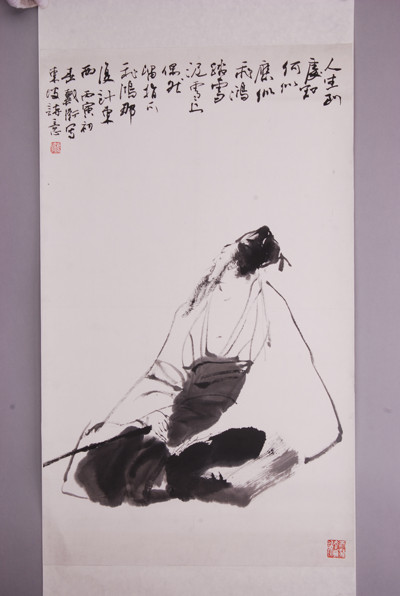 人生到
處知
何似
應似
飛鴻
踏雪
泥雪上
偶然
留指爪
飛鴻那
復計東
西丙寅初
春戴衛寫
東坡詩意